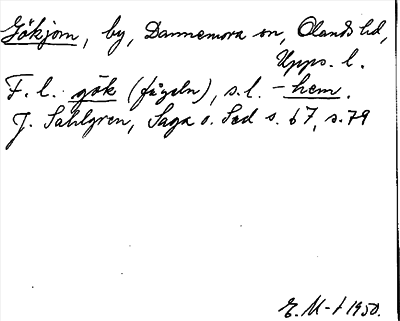 Gökjom, by, Dannemora sn, Olands hd,
Upps. l.
F. l. gök (fågeln), s.l. - hem.
J. Sahlgren, Saga o. Sed s. 67, s. 79
E. M-t 1950.